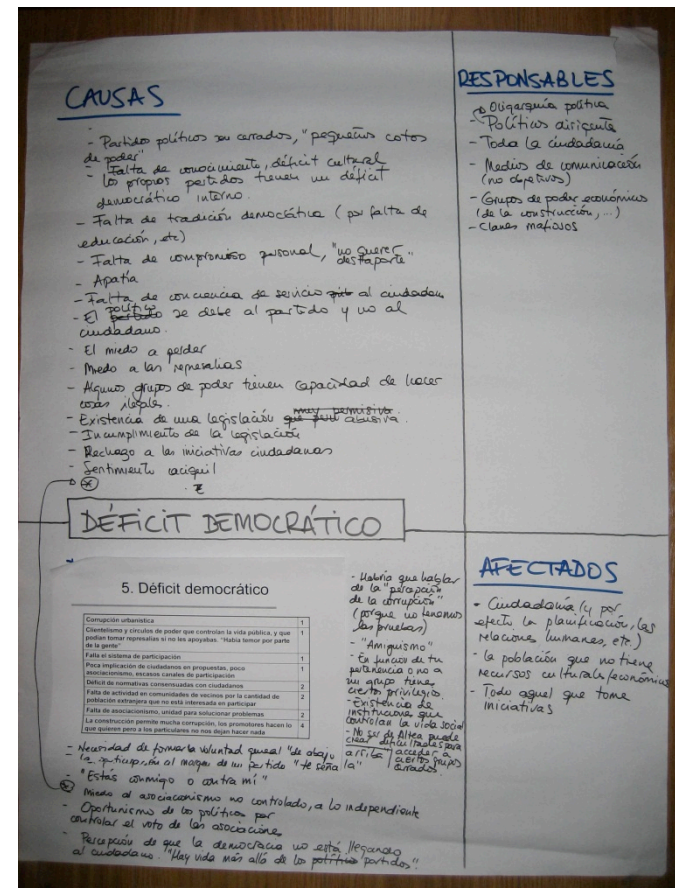 CAUSAS
- Partidos políticos son cerrados, "pequeños cotos
de poder"
- Falta de conocimiento, déficit cultural
- Los propios partidos tienen un déficit
democrático interno.
- Falta de tradición democrática (por falta de
educación, etc)
- Falta de compromiso personal, "no querer
destaparte"
- Apatía
- Falta de conciencia de servicio al ciudadano
- El político partido se debe al partido y no al
ciudadano.
- El miedo a perder
- Miedo a las represalias
- Algunos grupos de poder tienen capacidad de hacer
cosas ilegales.
- Existencia de una legislación muy permisiva
abusiva.
- Incumplimiento de la legislación
- Rechazo a las iniciativas ciudadanas
- Sentimiento caciquil
RESPONSABLES
Oligarquía política
- Políticos dirigente
- Toda la ciudadanía
- Medios de comunicación
(no objetivos)
- Grupos de poder económicos
(de la construcción, ...)
- Clanes mafiosos
DÉFICIT DEMOCRÁTICO
5. Déficit democrático
Corrupción urbanística 1
Clientelismo y círculos de poder que controlan la vida pública, y que 1
podían tomar represalias si no les apoyabas. "Había temor por parte
de la gente"
Falta el sistema de participación 1
Poca implicación de ciudadanos en propuestas, poco 1
asociacionismo, escasos canales de participación
Déficit de normativas consensuadas con ciudadanos 2
Falta de actividad en comunidades de vecinos por la cantidad de 2
población extranjera que no está interesada en participar
Falta de asociacionismo, unidad para solucionar problemas 2
La construcción permite mucha corrupción, los promotores hacen lo 4
que quieren pero a los particulares no nos dejan hacer nada
- Habría que hablar
de la "percepción
de la corrupción"
(porque no tenemos
las pruebas)
- "Amiguismo"
- En función de tu
pertenencia o no a
un grupo tienes
ciertos privilegios.
- Existencia de
instituciones que
controlan la vida social
- No ser de Altea puede
crear dificultades para
acceder a
ciertos grupos
cerrados.
- Necesidad de formar la voluntad general "de abajo
arriba"
- la participación al margen de un partido "te señala"
- "Estás conmigo o contra mí"
Miedo al asociacionismo no controlado, a lo independiente
- Oportunismo de los políticos por
controlar el voto de las asociaciones
- Percepción de que la democracia no está llegando
al ciudadano. "Hay vida más allá de los políticos partidos".
AFECTADOS
- Ciudadanía (y por
efecto la planificación, las
relaciones humanas, etc.)
- la población que no tiene
recursos culturales/económicos
- Todo aquel que tome
iniciativas